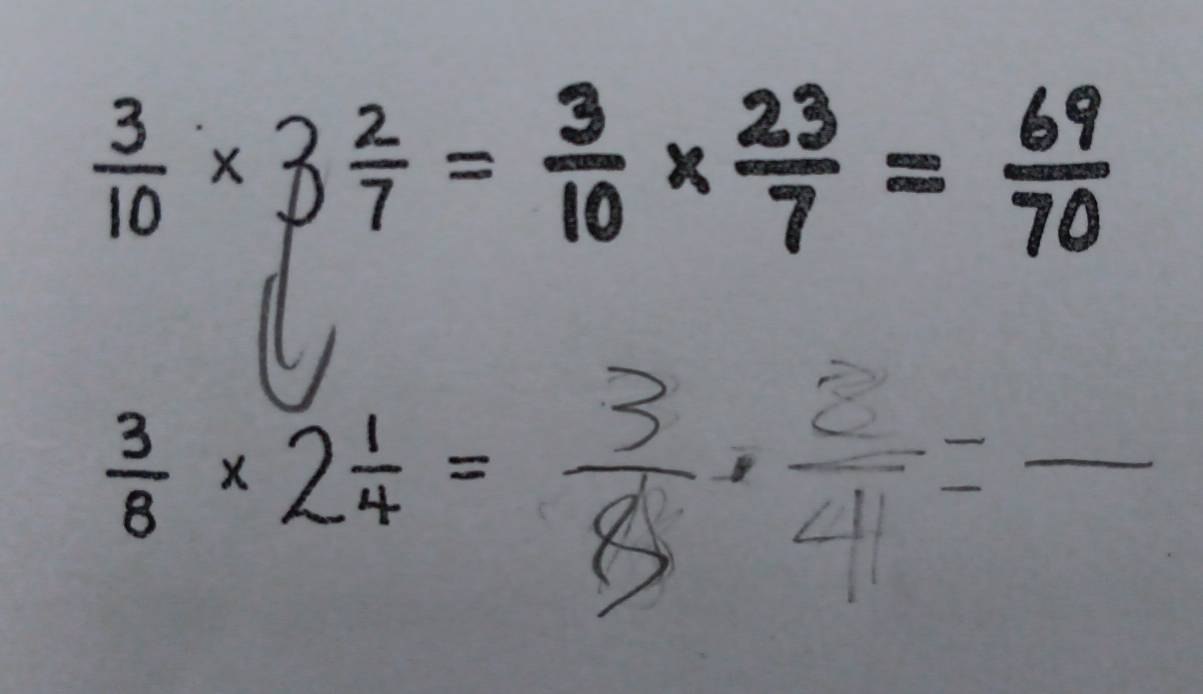 3/10 × 3 2/7 = 3/10 × 23/7 = 69/70
3/8 × 2 1/4 = 3/8 · 8/4 = —